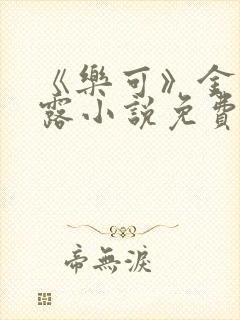 《樂可》金
露小說免費
帝無淚